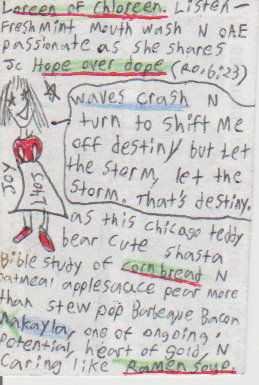 Loreen of Chloreen. Listen-
Freshmint Mouth wash N OAE
passionate as she shares
Jc Hope over dope (Ro:6:23)
waves crash N
turn to shift Me
off destiny but Let
the storm, let the
storm. That's destiny.
JOY
as this chicago teddy
bear cute shasta
Bible study of Cornbread N
oatmeal applesauce pear more
than stew pop Barbeque Bacon
Mkayla, one of ongoing.
potential, heart of gold, N
Caring like Ramen Soup.